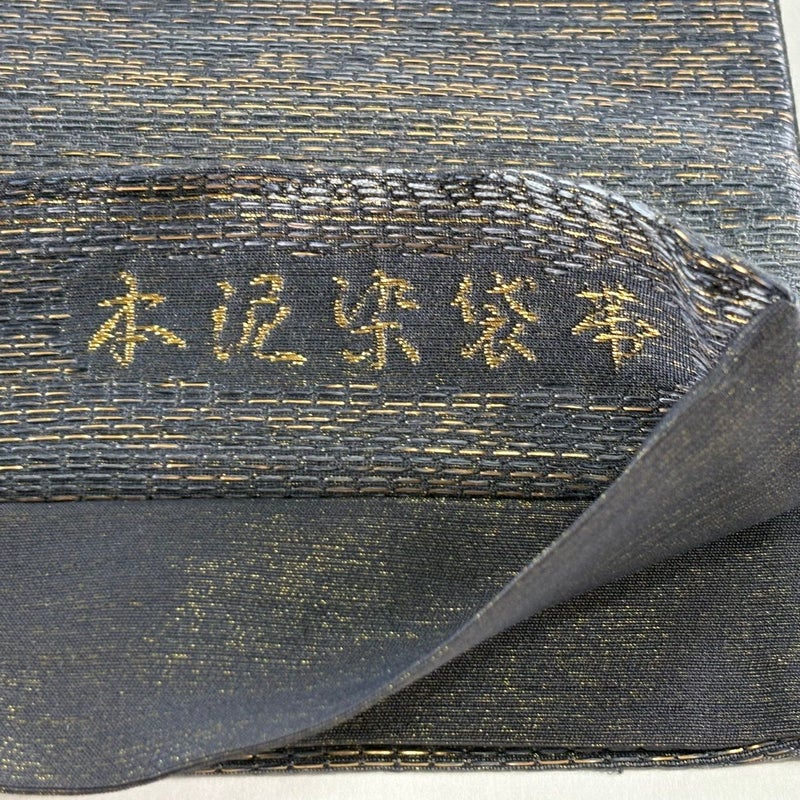 本泥染袋帯